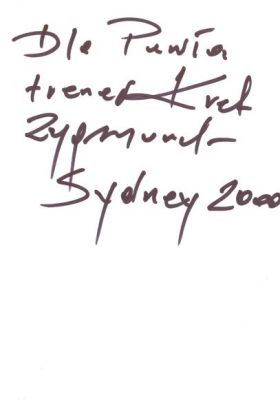 Dla Pawła
trener Kret
Zygmunt
Sydney 2000